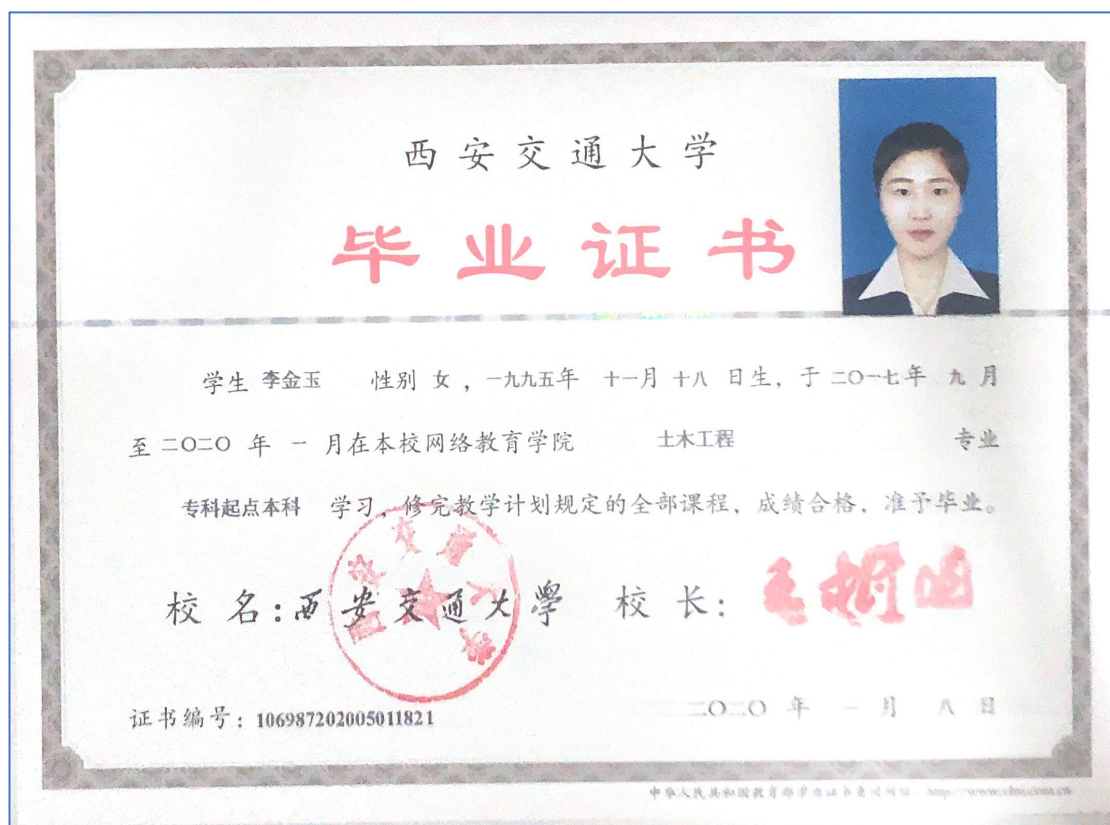 西安交通大学
毕业证书
学生 李金玉 性别 女 ，一九九五年 十一月 十八 日生，于 二〇一七年 九 月
至 二〇二〇 年 一 月在本校网络教育学院 土木工程 专业
专科起点本科 学习，修完教学计划规定的全部课程，成绩合格，准予毕业。
校 名：西安交通大學 校 长：
西安交通大学
证书编号：106987202005011821 二〇二〇 年 一 月 八 日
中华人民共和国教育部学历证书查询网址：http://www.chsi.com.cn